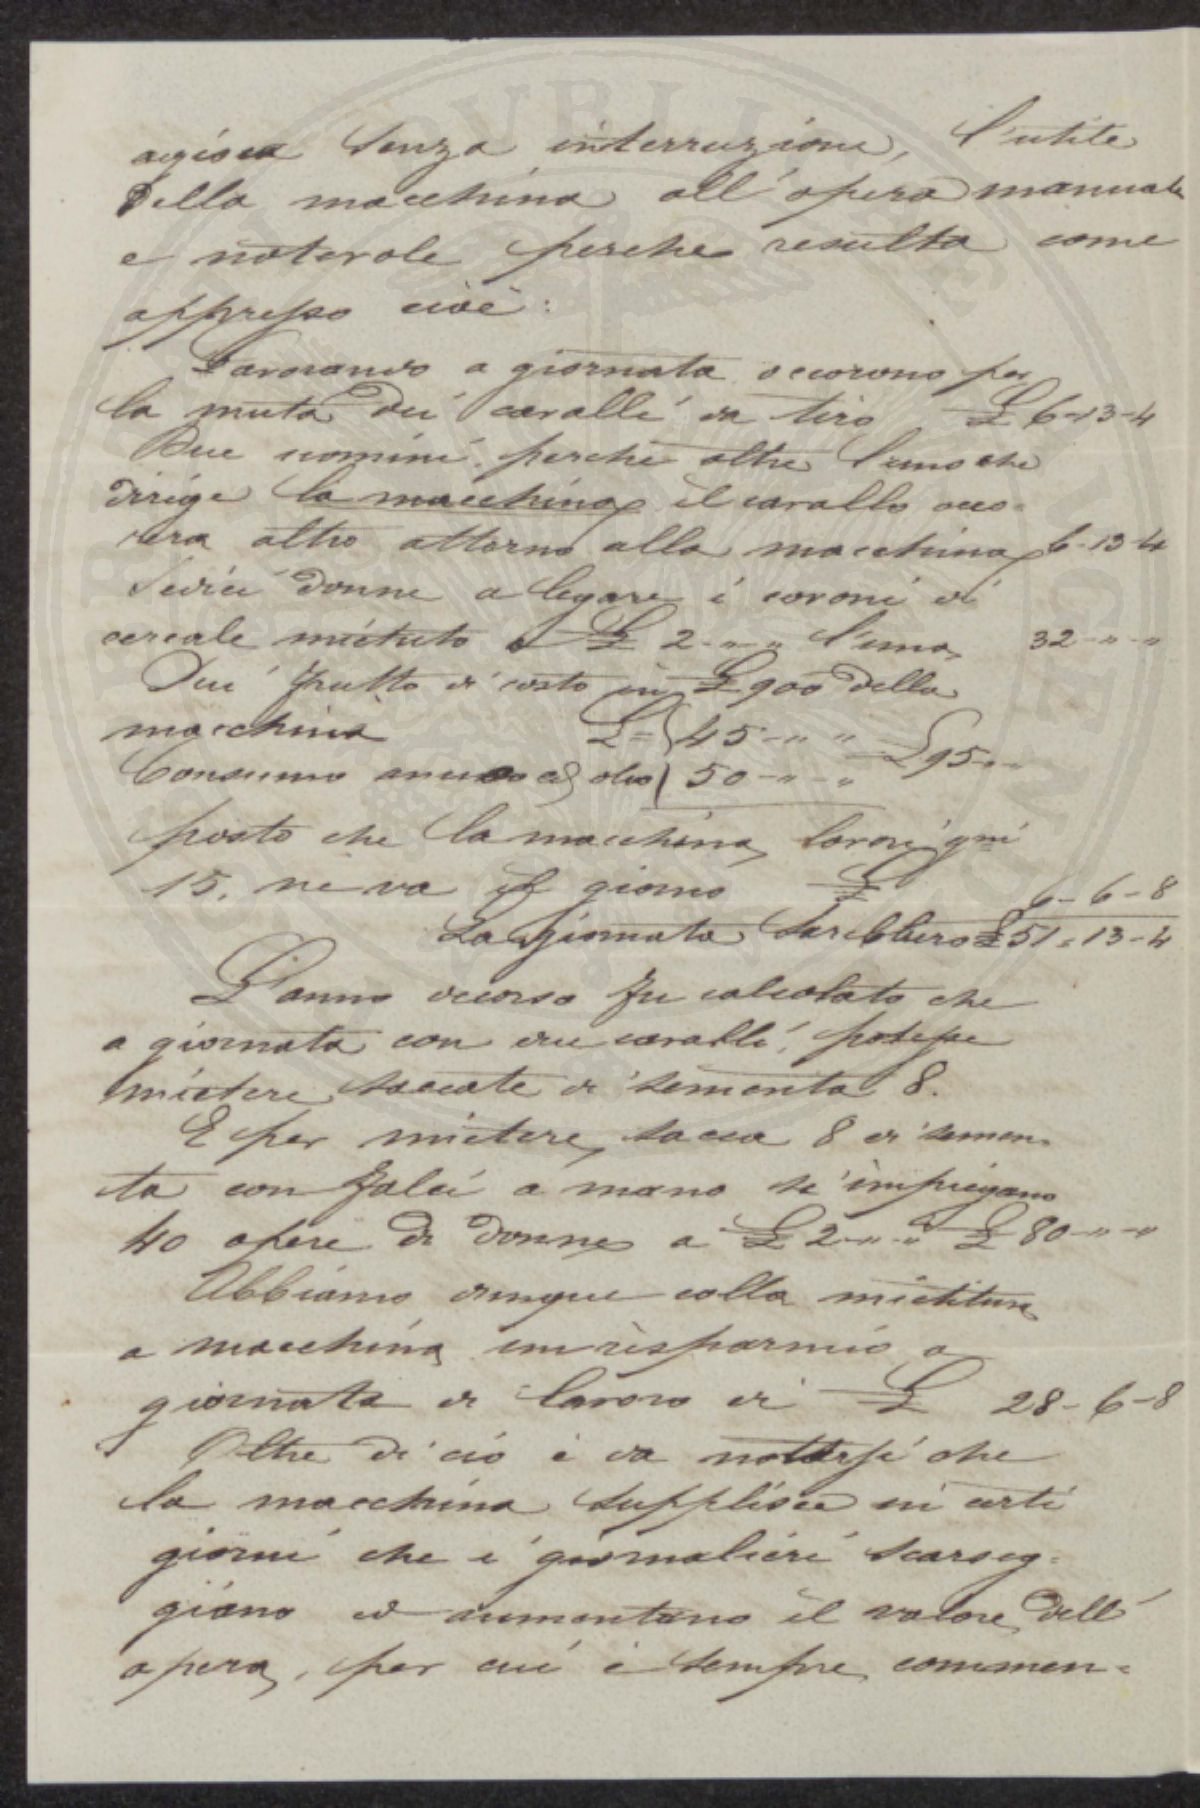 agisca senza interruzione, l'utile
della macchina all'opera manuale
e notevole perche resulta come
appresso cioè:
Lavorando a giornata occorono per
la muta dei cavalli da tiro £ 6-13-4
Due uomini, perche oltre l'uno che
dirige la macchina e il cavallo occo=
rera altro attorno alla macchina 6-13-4
Sedici donne a legare i covoni di
cereale mietuto a £ 2-"-" l'una, 32-"-"
Dei frutto di costo in £ 900 della
macchina £= 45-"-" £ 95-"-"
Consumo annuo ed olio 50-"-"
posto che la macchina lavori gni
15. ne va il giorno £ 6-6-8
La giornata sarebbero £ 51=13-4
L'anno decorso fu calcolato che
a giornata con due cavalli, potesse
mietere saccate di sementa 8.
E per mietere sacca 8 di semen=
ta con falci a mano si impiegano
40 opere di donne a £ 2-"-" £ 80-"-"
Abbiamo dunque colla mietitura
a macchina un risparmio a
giornata di lavoro di £ 28-6-8
Oltre di ciò è da notarsi che
la macchina supplisce in certi
giorni che i giornalieri scarseg=
giano ed aumentano il valore dell'
opera, per cui è sempre commen=